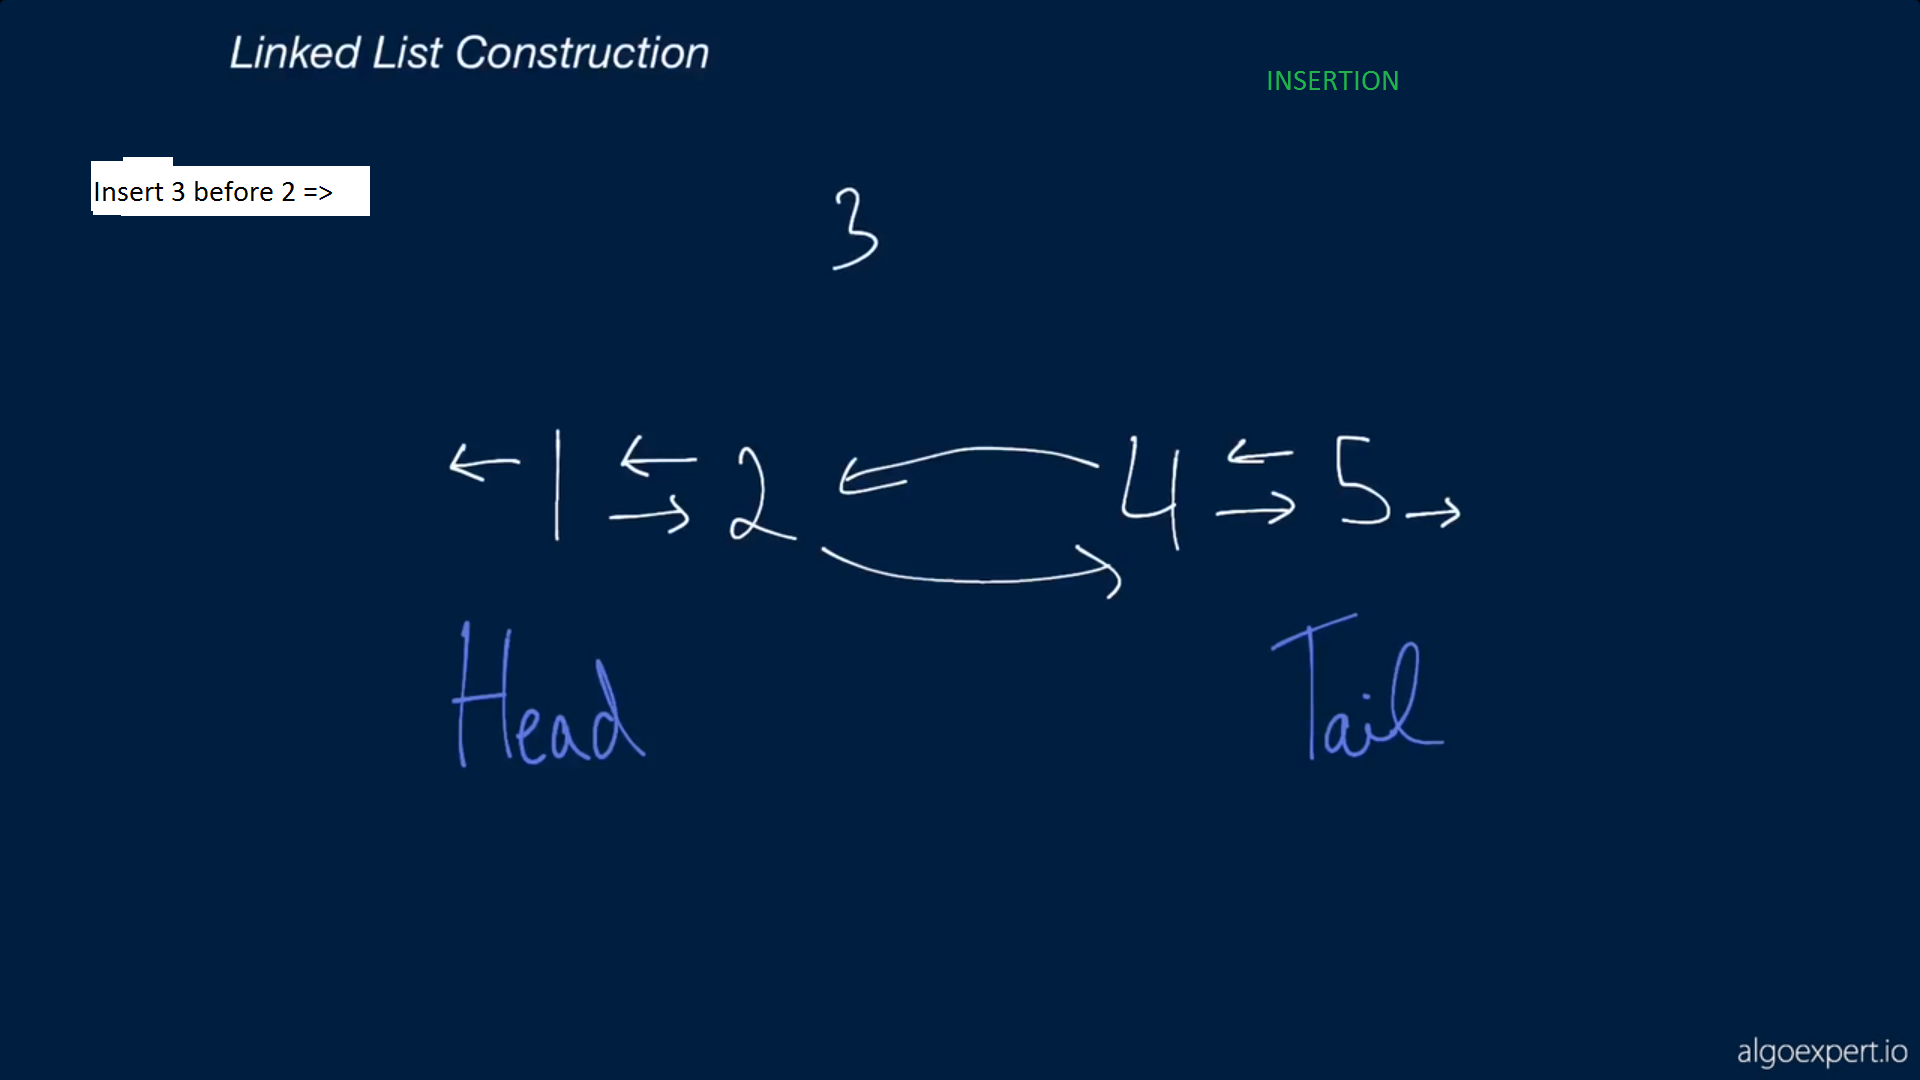 Linked List Construction
INSERTION
Insert 3 before 2 =>
3
1 2 4 5
Head Tail
algoexpert.io